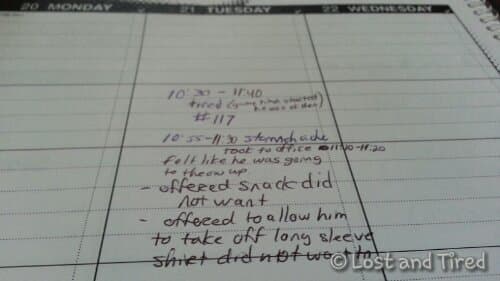 20 MONDAY
21 TUESDAY
22 WEDNESDAY
10:30 - 11:40
tired (gym time started
he was at den)
#117
10:55-11:30 stomach ache
took to office 11:10-11:20
felt like he was going
to throw up
- offered snack did
not want
- offered to allow him
to take off long sleeve
shirt did not want to
© Lost and Tired